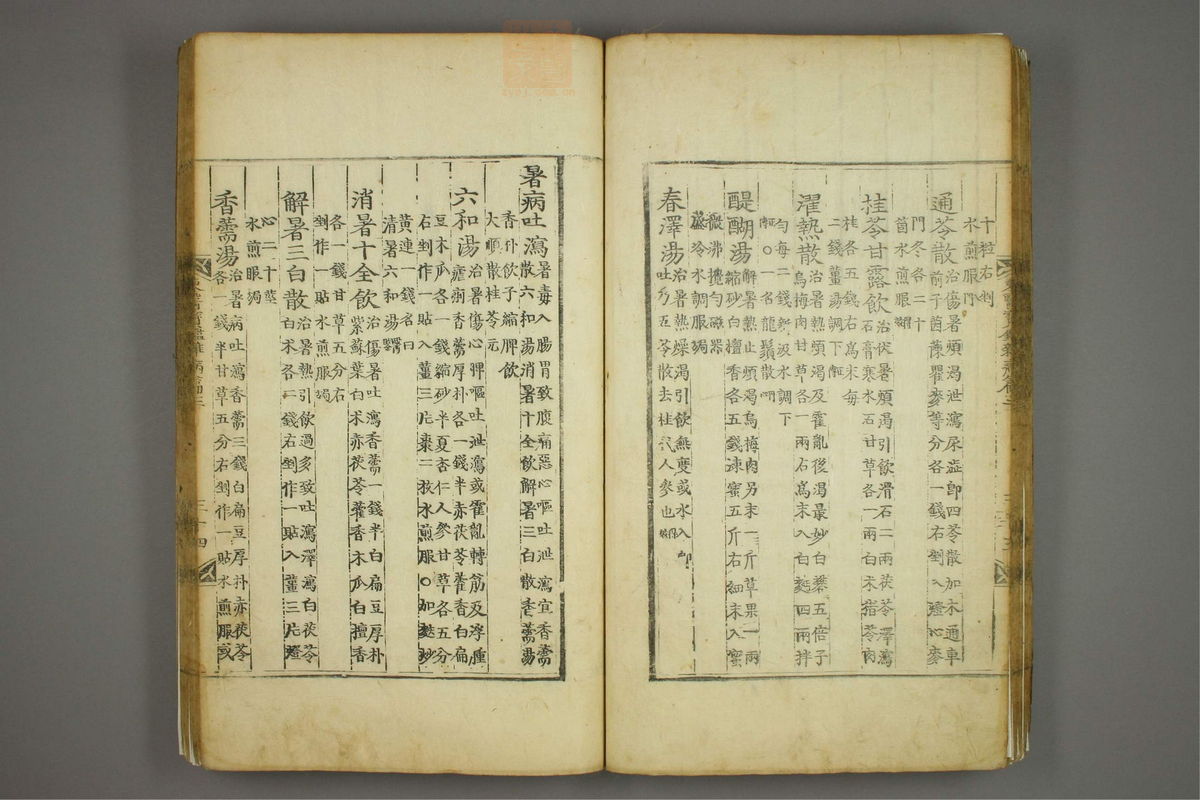 十粒右剉
水煎服
通苓散治傷暑煩渴泄瀉尿澁卽四苓散加木通車
前子茵蔯瞿麥等分各一錢右剉入燈心麥
門冬各二十
茵水煎服
桂苓甘露飮治伏暑煩渴引飮滑石二兩茯苓澤瀉
石膏寒水石甘草各一兩白朮猪苓肉
桂各五錢右爲末每
二錢薑湯調下
濯熱散治暑熱煩渴及霍亂後渴最妙白礬五倍子
烏梅肉甘草各一兩右爲末入白麪四兩拌
勻每二錢新汲水調下
〇一名龍鬚散
醍醐湯解暑熱止煩渴烏梅肉另末一斤草果一兩
縮砂白檀香各五錢煉蜜五斤右細末入蜜
微沸攪勻磁器
盛冷水調服
春澤湯治暑熱燥渴引飮無度或水入卽
吐乃五苓散去桂代人參也
暑病吐瀉暑毒入腸胃致腹痛惡心嘔吐泄瀉宜香薷
散六和湯消暑十全飮解暑三白散香薷湯
香朴飮子縮脾飮
大順散桂苓元
六和湯治暑傷心脾嘔吐泄瀉或霍亂轉筋及浮腫
瘧痢香薷厚朴各一錢半赤茯苓藿香白扁
豆木瓜各一錢縮砂半夏杏仁人參甘草各五分
右剉作一貼入薑三片棗二枚水煎服〇加麩炒
黃連一錢名曰
淸暑六和湯
消暑十全飮治傷暑吐瀉香薷一錢半白扁豆厚朴
紫蘇葉白朮赤茯苓藿香木瓜白檀香
各一錢甘草五分右
剉作一貼水煎服
解暑三白散治暑熱引飮過多致吐瀉澤瀉白茯苓
白朮各二錢右剉作一貼入薑三片燈
心二十莖
水煎服
香薷湯治暑病吐瀉香薷三錢白扁豆厚朴赤茯苓
各一錢半甘草五分右剉作一貼水煎服或
三十四